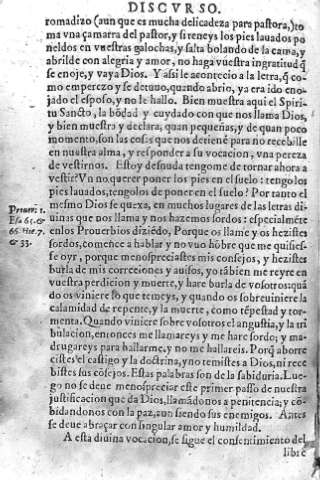 DISCVRSO.
romadizo (aun que es mucha delicadeza para pastora,) to
ma vna çamarra del pastor, y si teneys los pies lauados po
neldos en vuestras galochas, y salta bolando de la cama, y
abrilde con alegria y amor, no haga vuestra ingratitud q̃
se enoje, y vaya Dios. Y assi le acontecio a la letra, q̃ co
mo emperezo y se detuuo, quando abrio, ya era ido eno-
jado el esposo, y no le hallo. Bien muestra aqui el Spiri-
tu Sancto, la bõdad y cuydado con que nos llama Dios,
y bien muestra y declara, quan pequeñas, y de quan poco
momento, son las cosas que nos detienẽ para no recebille
en nuestra alma, y responder a su vocacion, vna pereza
de vestirnos. Estoy desnuda tengome de tornar ahora a
vestir? Vn no querer poner los pies en el suelo: tengolos
pies lauados, tengolos de poner en el suelo? Por tanto el
mesmo Dios se quexa, en muchos lugares de las letras di
uinas que nos llama y nos hazemos sordos: especialmẽte
Prouer. 1.
en los Prouerbios diziẽdo, Porque os llame y os hezistes
Esa. 65. &
sordos, comence a hablar y no vuo hõbre que me quisies-
66. Hie. 7.
se oyr, porque menospreciastes mis consejos, y hezistes
& 33.
burla de mis correciones y auisos, yo tãbien me reyre en
vuestra perdicion y muerte, y hare burla de vosotros: quã
do os viniere lo que temeys, y quando os sobreuiniere la
calamidad de repente, y la muerte, como tẽpestad y tor-
menta. Quando viniere sobre vosotros el angustia, y la tri
bulacion, entonces me llamareys y me hare sordo; y ma-
drugareys para hallarme, y no me hallareis. Porq̃ aborre
cistes el castigo y la doctrina, y no temistes a Dios, ni rece
bistes sus cõsejos. Estas palabras son de la sabiduria. Lue-
go no se deue menospreciar este primer passo de nuestra
justificacion que da Dios, llamãdonos a penitencia; y cõ-
bidandonos con la paz, aun siendo sus enemigos. Antes
se deue abraçar con singular amor y humildad.
A esta diuina vocacion, se sigue el consentimiento del
libre